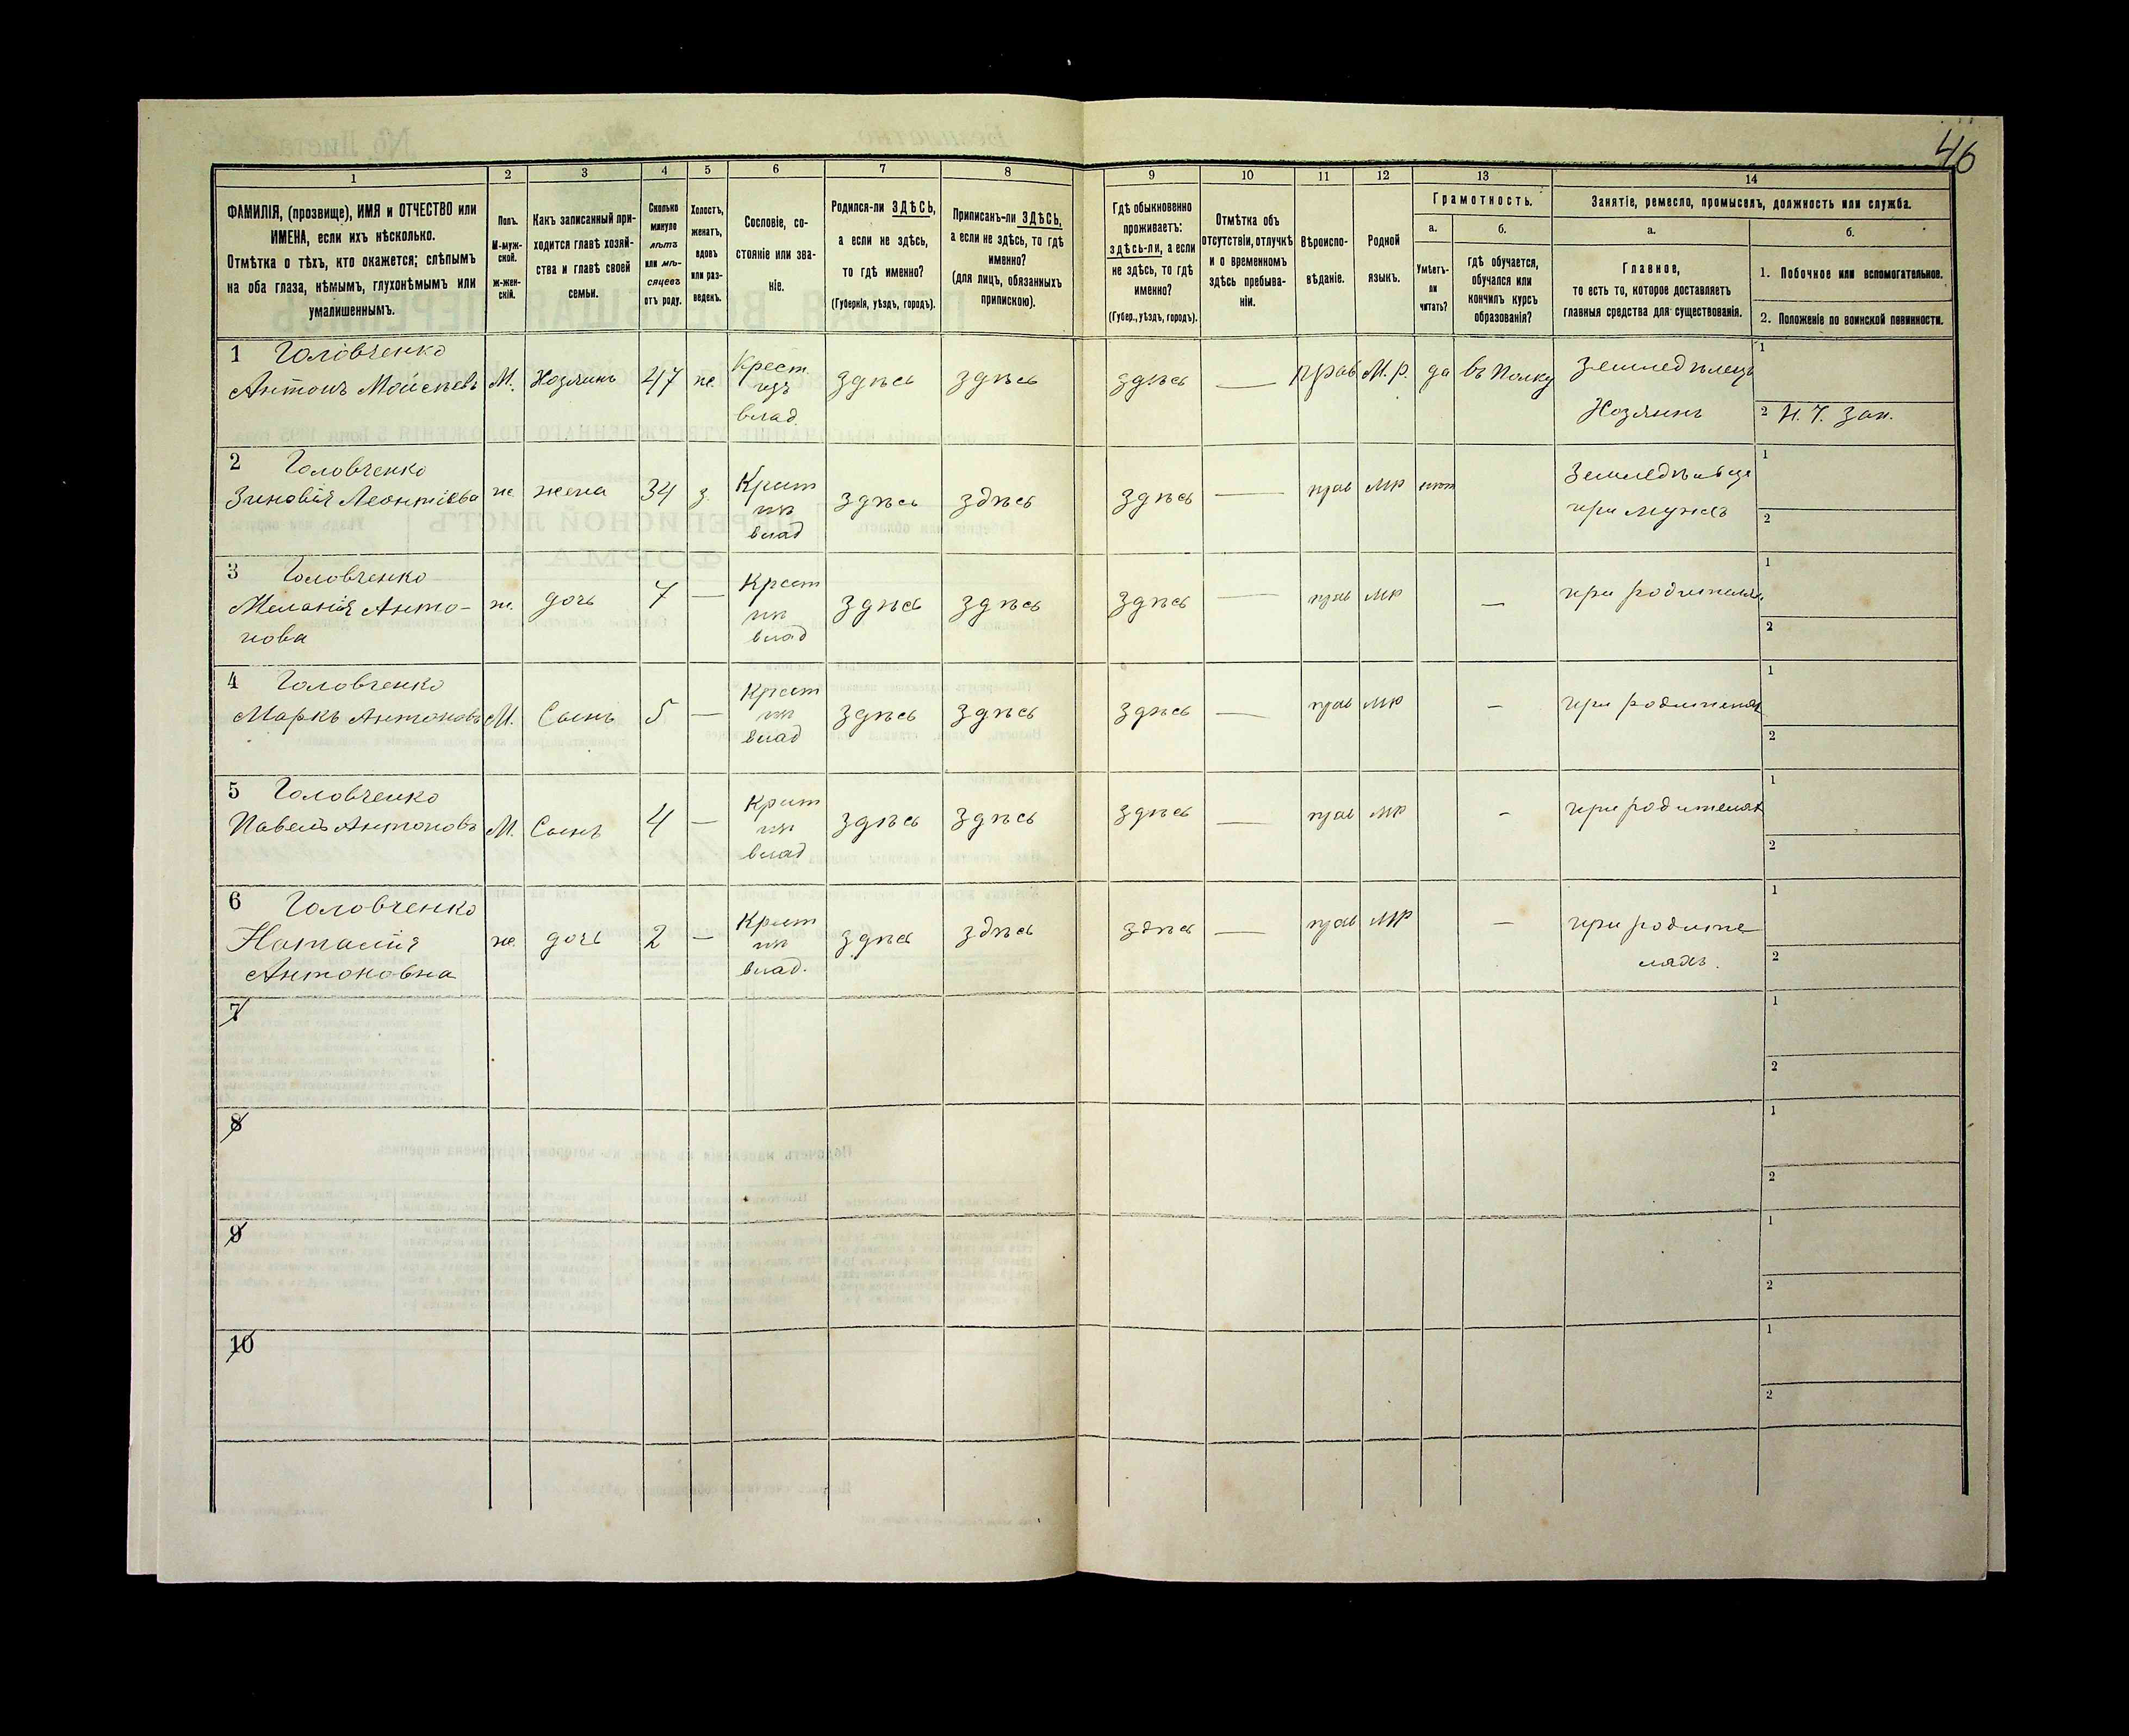 46
1 2 3 4 5 6 7 8 9 10 11 12 13 14
ФАМИЛІЯ, (прозвище), ИМЯ и ОТЧЕСТВО или
ИМЕНА, если ихъ нѣсколько.
Отмѣтка о тѣхъ, кто окажется; слѣпымъ
на оба глаза, нѣмымъ, глухонѣмымъ или
умалишеннымъ.
Полъ.
М-муж-
ской.
Ж-жен-
скій.
Какъ записанный при-
ходится главѣ хозяй-
ства и главѣ своей
семьи.
Сколько
минуло
лѣтъ
или мѣ-
сяцевъ
отъ роду.
Холостъ,
женатъ,
вдовъ
или раз-
веденъ.
Сословіе, со-
стояніе или зва-
ніе.
Родился-ли ЗДѢСЬ,
а если не здѣсь,
то гдѣ именно?
(Губернія, уѣздъ, городъ).
Приписанъ-ли ЗДѢСЬ,
а если не здѣсь, то гдѣ
именно?
(для лицъ, обязанныхъ
припискою).
Гдѣ обыкновенно
проживаетъ:
здѣсь-ли, а если
не здѣсь, то гдѣ
именно?
(Губер., уѣздъ, городъ).
Отмѣтка объ
отсутствіи, отлучкѣ
и о временномъ
здѣсь пребыва-
ніи.
Вѣроиспо-
вѣданіе.
Родной
языкъ.
Грамотность.
а.
Умѣетъ-
ли
читать?
б.
гдѣ обучается,
обучался или
кончилъ курсъ
образованія?
Занятіе, ремесло, промыселъ, должность или служба.
а.
Главное,
то есть то, которое доставляетъ
главныя средства для существованія.
б.
1. Побочное или вспомогательное.
2. Положеніе по воинской повинности.
1 Головченко
Антонъ Мойсѣевъ М. Хозяинъ 47 ж
Крест
изъ
влад.
здѣсь здѣсь здѣсь — прав М. р. да въ Полку
Земледѣлецъ
Хозяинъ
1
2 Н. Ч. Зап.
2 Головченко
Зиновія Леонтіева ж жена 34 з.
Крест
из
влад
здѣсь здѣсь здѣсь — прав МР нѣт
Земледѣлица
при мужѣ
1
2
3 Головченко
Меланія Анто-
нова
ж. дочь 7 —
Крест
из
влад
здѣсь здѣсь здѣсь — прав МР — при родителях
1
2
4 Головченко
Маркъ Антоновъ М. Сынъ 5 —
Крест
из
влад
здѣсь здѣсь здѣсь — прав МР — при родителях
1
2
5 Головченко
Павелъ Антоновъ М. Сынъ 4 —
Крест
из
влад
здѣсь здѣсь здѣсь — прав МР - при родителях
1
2
6 Головченко
Наталія
Антоновна
ж. дочь 2 —
Крест
из
влад.
здѣсь здѣсь здѣсь — прав МР —
при родите
ляхъ.
1
2
7
1
2
8
1
2
9
1
2
10
1
2